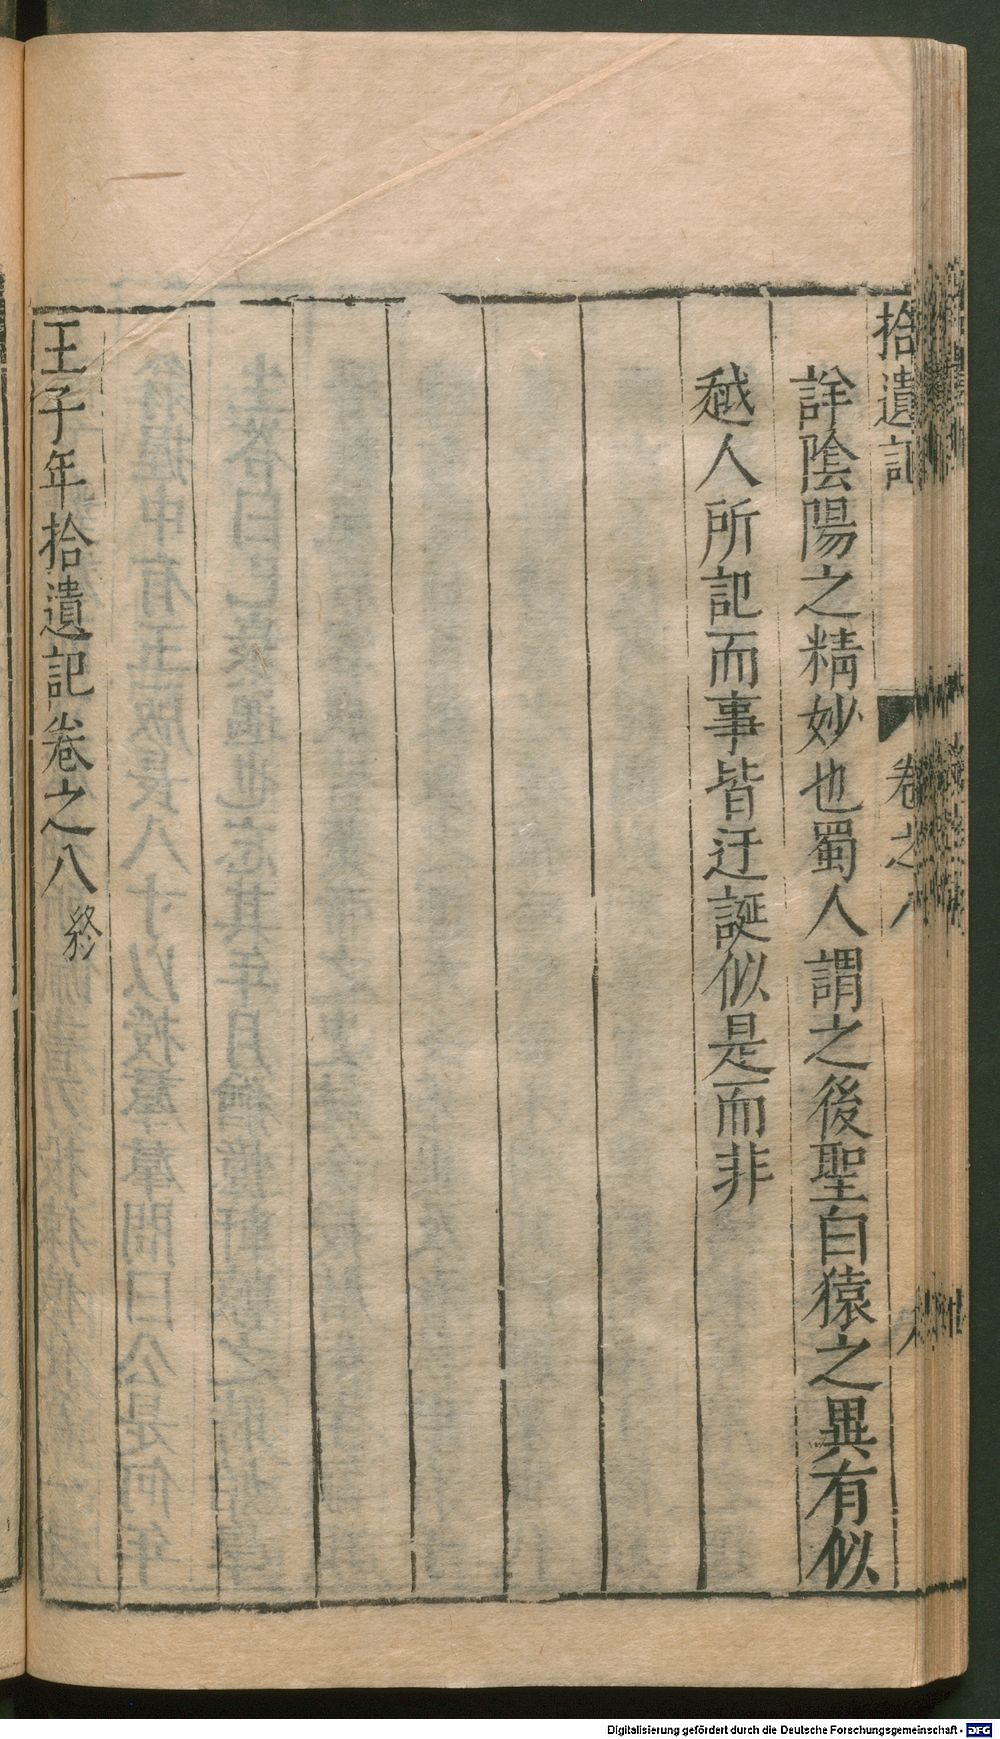 拾遺記 卷之八
詳陰陽之精妙也蜀人謂之後聖白猿之異有似
越人所記而事皆迂誕似是而非
王子年拾遺記卷之八 終
Digitalisierung gefördert durch die Deutsche Forschungsgemeinschaft - DFG